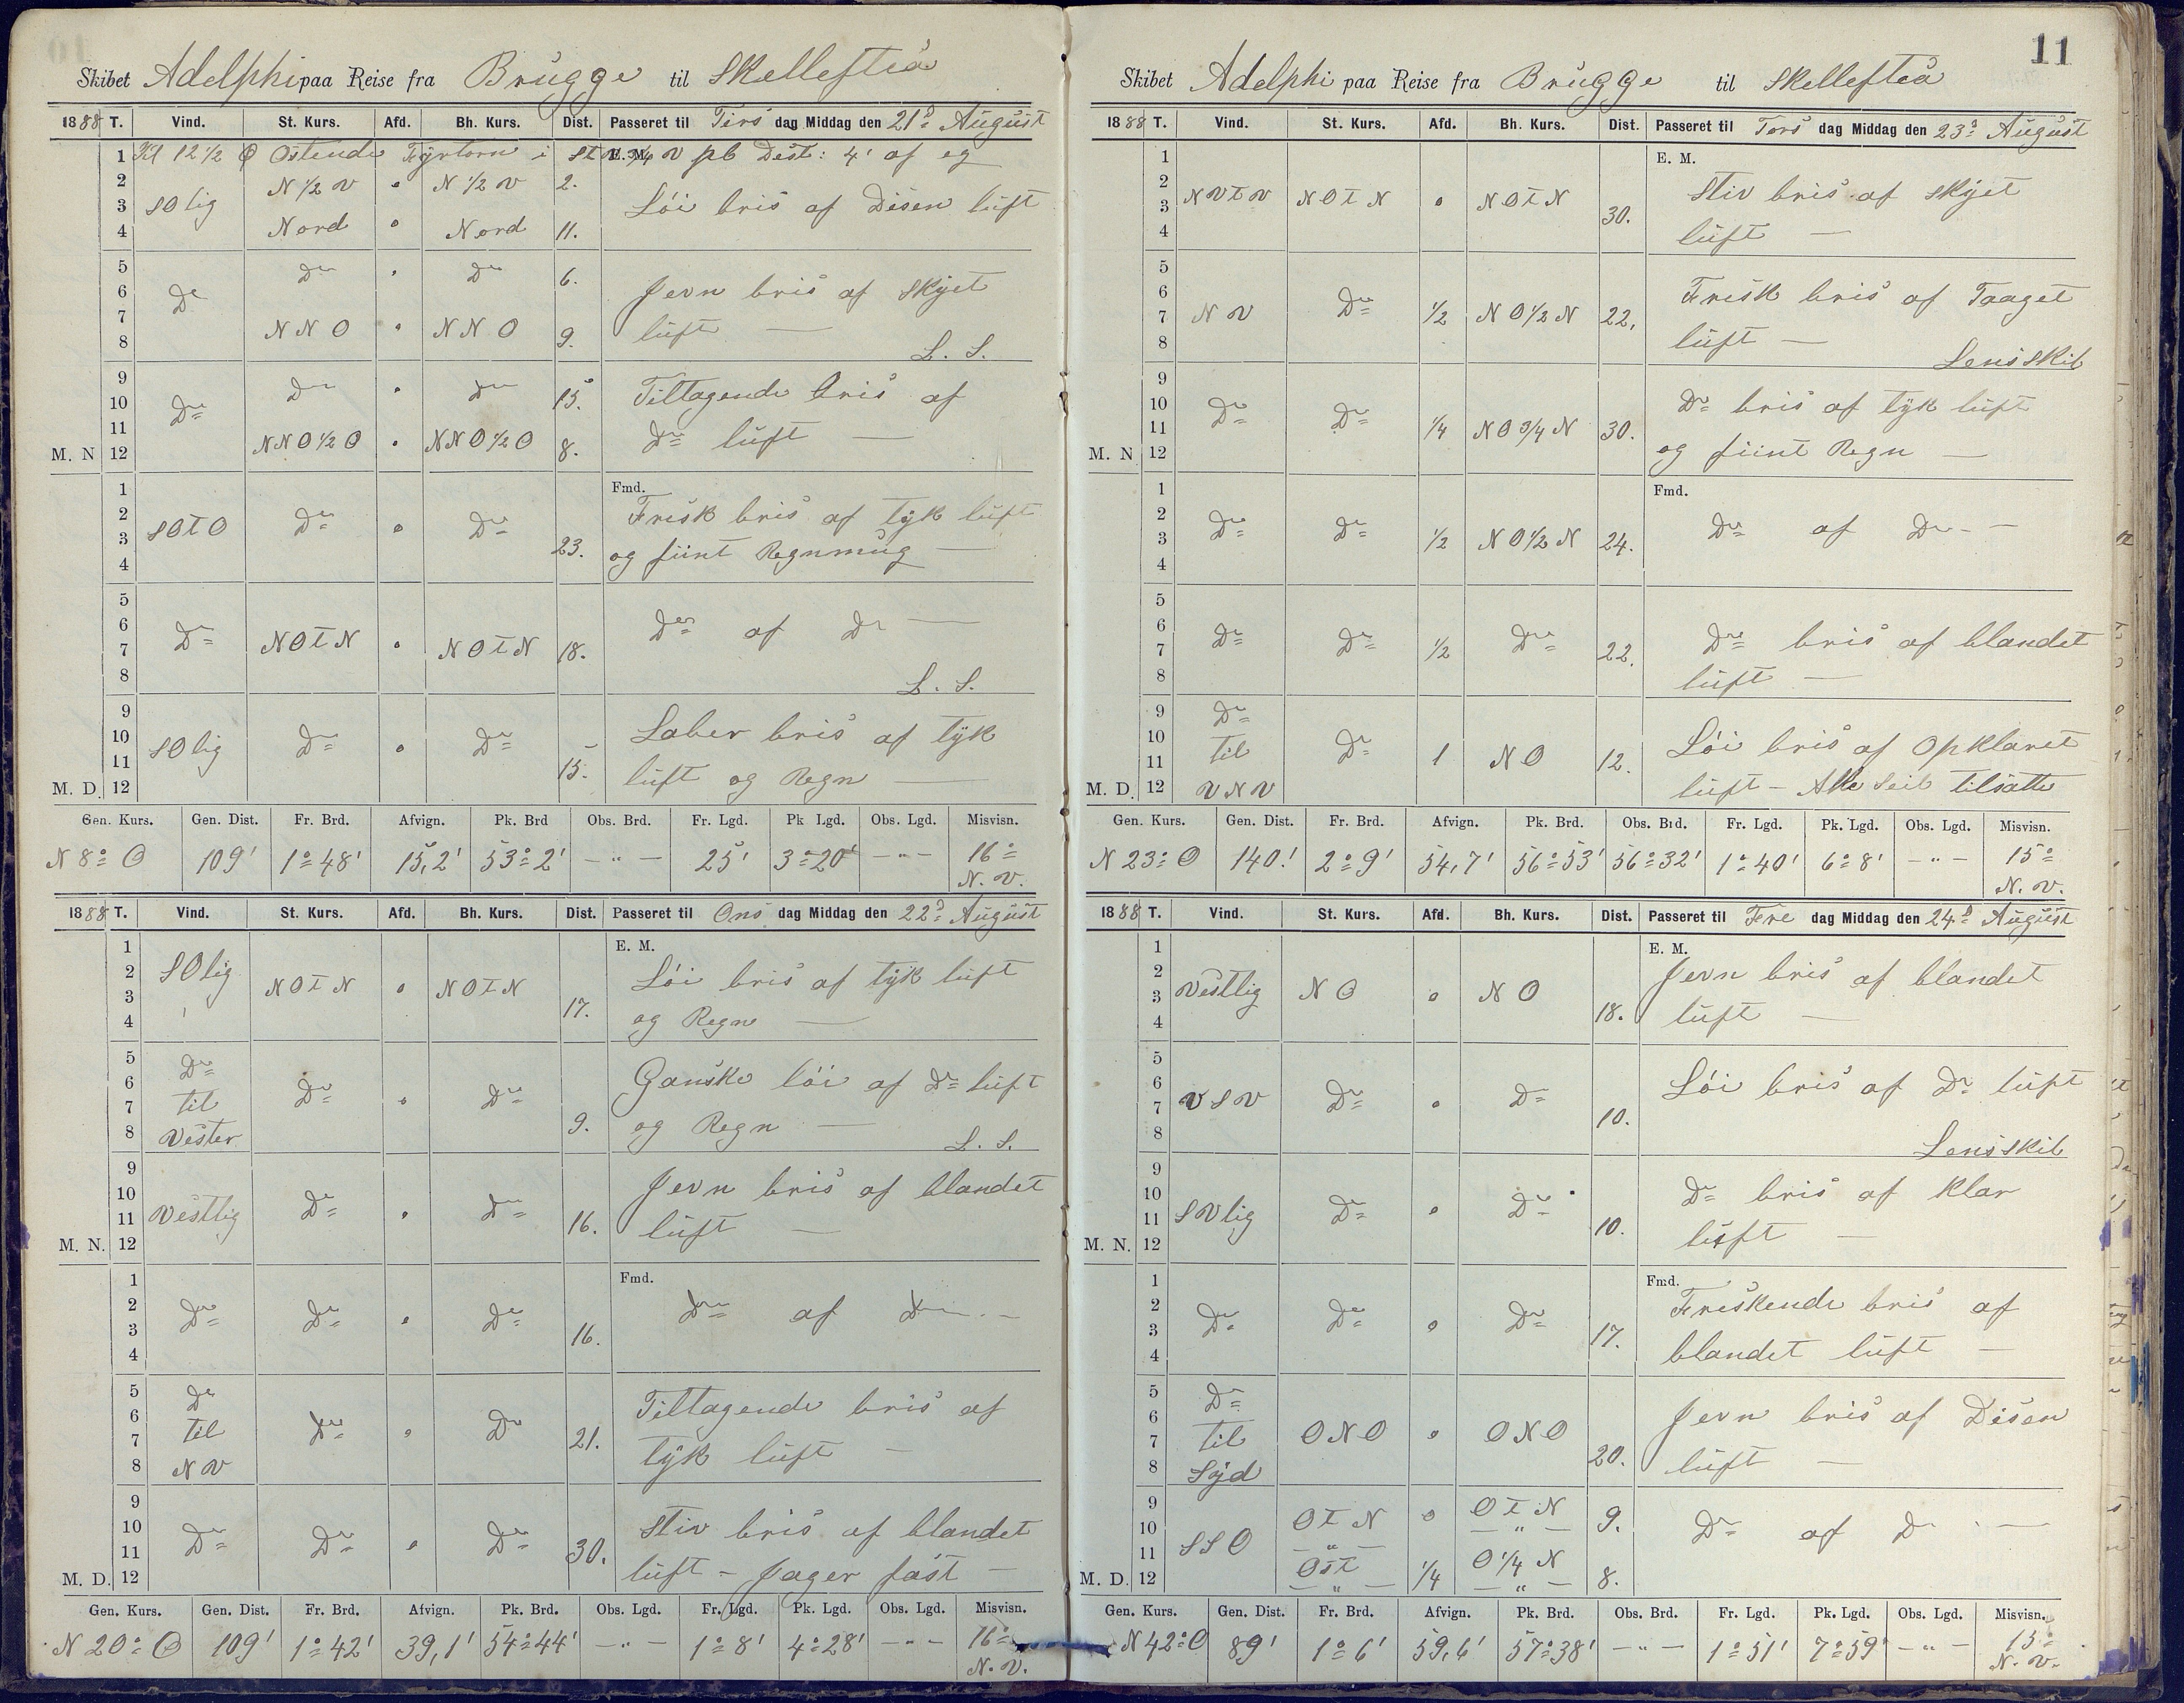 Skibet Adelphi paa Reise fra Brügge til Skellefteå
1888 T. Vind. St. Kurs. Afd. Bh. Kurs. Dist. Passeret til Tirs dag Middag den 21de August
1 Kl 12 1/2 Ostende Fyrtorn i E. M. pb Dest: 4' af eg
2 N 1/2 V " N 1/2 V 2.
3 SOlig Löi bris af Disen lüft
4 Nord " Nord 11.
5 Do " Do 6.
6 Do Jevn bris af Skyet
7 NNO " NNO 9. lüft —
8 L. S.
9 Do " Do 15. Tiltagende bris af
10 Do
11 NNO 1/2 O " NNO 1/2 O 8. Do lüft —
M. N 12
1 Fmd.
2 SOTO Do " Do Frisk bris af tyk lüft
3 23. og fiint Regnmüg —
4
5
6 Do NOTN " NOTN 18. Do af Do —
7
8 L. S.
9
10 SOlig Do " Do Laber bris af tyk
11 15. lüft og Regn —
M. D. 12
Gen. Kurs. Gen. Dist. Fr. Brd. Afvign. Pk. Brd Obs. Brd. Fr. Lgd. Pk. Lgd. Obs. Lgd. Misvisn.
N 8° O 109' 1° 48' 15,2' 53° 2' — " — 25' 3° 20' — " — 16°
N. V.
1888 T. Vind. St. Kurs. Afd. Bh. Kurs. Dist. Passeret til Ons dag Middag den 22de August
1 E. M.
2 SOlig NOTN " NOTN Löi bris af tyk lüft
3 17. og Regn —
4
5 Do
6 Do " Do Ganske löi af Do lüft
7 til 9. og Regn —
8 Vester L. S.
9
10 Do " Do Jevn bris af blandet
11 Vestlig 16. lüft —
M. N. 12
1 Fmd.
2 Do Do " Do Do af Do —
3 16.
4
5 Do
6 til Do " Do Tiltagende bris af
7 21. tyk lüft —
8 NV
9
10 Do Do " Do Stiv bris af blandet
11 30. lüft — Jager fast —
M. D. 12
Gen. Kurs. Gen. Dist. Fr. Brd. Afvign. Pk. Brd. Obs. Lgd. Fr. Lgd. Pk. Lgd. Obs. Lgd. Misvisn.
N 20° O 109' 1° 42' 39,1' 54° 44' — " — 1° 8' 4° 28' — " — 16°
N. V.
11
Skibet Adelphi paa Reise fra Brügge til Skellefteå
1888 T. Vind. St. Kurs. Afd. Bh. Kurs. Dist. Passeret til Tors dag Middag den 23de August
1 E. M.
2 NVTV NOTN " NOTN Stiv bris af skyet
3 30. lüft —
4
5
6 Frisk bris af Taaget
7 NV Do 1/2 NO 1/2 N 22. lüft —
8 Lens Skib
9
10 Do Do Do bris af tyk lüft
11 1/4 NO 3/4 N 30. og fiint Regn —
M. N 12
1 Fmd.
2 Do Do Do af Do —
3 1/2 NO 1/2 N 24.
4
5
6 Do Do 1/2 Do 22. Do bris af blandet
7 lüft —
8
9 Do
10 til Do 1 NO 12. Löi bris af Opklaret
11
M. D. 12 VNV lüft — Alle Seil tilsatte
Gen. Kurs. Gen. Dist. Fr. Brd. Afvign. Pk. Brd. Obs. Brd. Fr. Lgd. Pk. Lgd. Obs. Lgd. Misvisn.
N 23° O 140' 2° 9' 54,7' 56° 53' 56° 32' 1° 40' 6° 8' — " — 15°
N. V.
1888 T. Vind. St. Kurs. Afd. Bh. Kurs. Dist. Passeret til Fre dag Middag den 24de August
1 E. M.
2 Jevn bris af blandet
3 Vestlig NO " NO 18. lüft —
4
5
6 Löi bris af Do lüft
7 VSV Do " Do 10.
8 Lens Skib
9
10 Do " Do Do bris af klar
11 SVlig 10. lüft —
M. N. 12
1 Fmd.
2 Do Do " Do Friskende bris af
3 17. blandet lüft —
4
5 Do
6 Jevn bris af Disen
7 til ONO " ONO 20. lüft —
8 Syd
9 OTN " OTN 9.
10 — " — Do af Do —
11 SSO Ost 1/4 O 1/4 N 8.
M. D. 12 — " — — " —
Gen. Kurs. Gen. Dist. Fr. Brd. Afvign. Pk. Brd. Obs. Brd. Fr. Lgd. Pk. Lgd. Obs. Lgd. Misvisn.
N 42° O 89' 1° 6' 59,6' 57° 38' — " — 1° 51' 7° 59' — " — 15°
N. V.